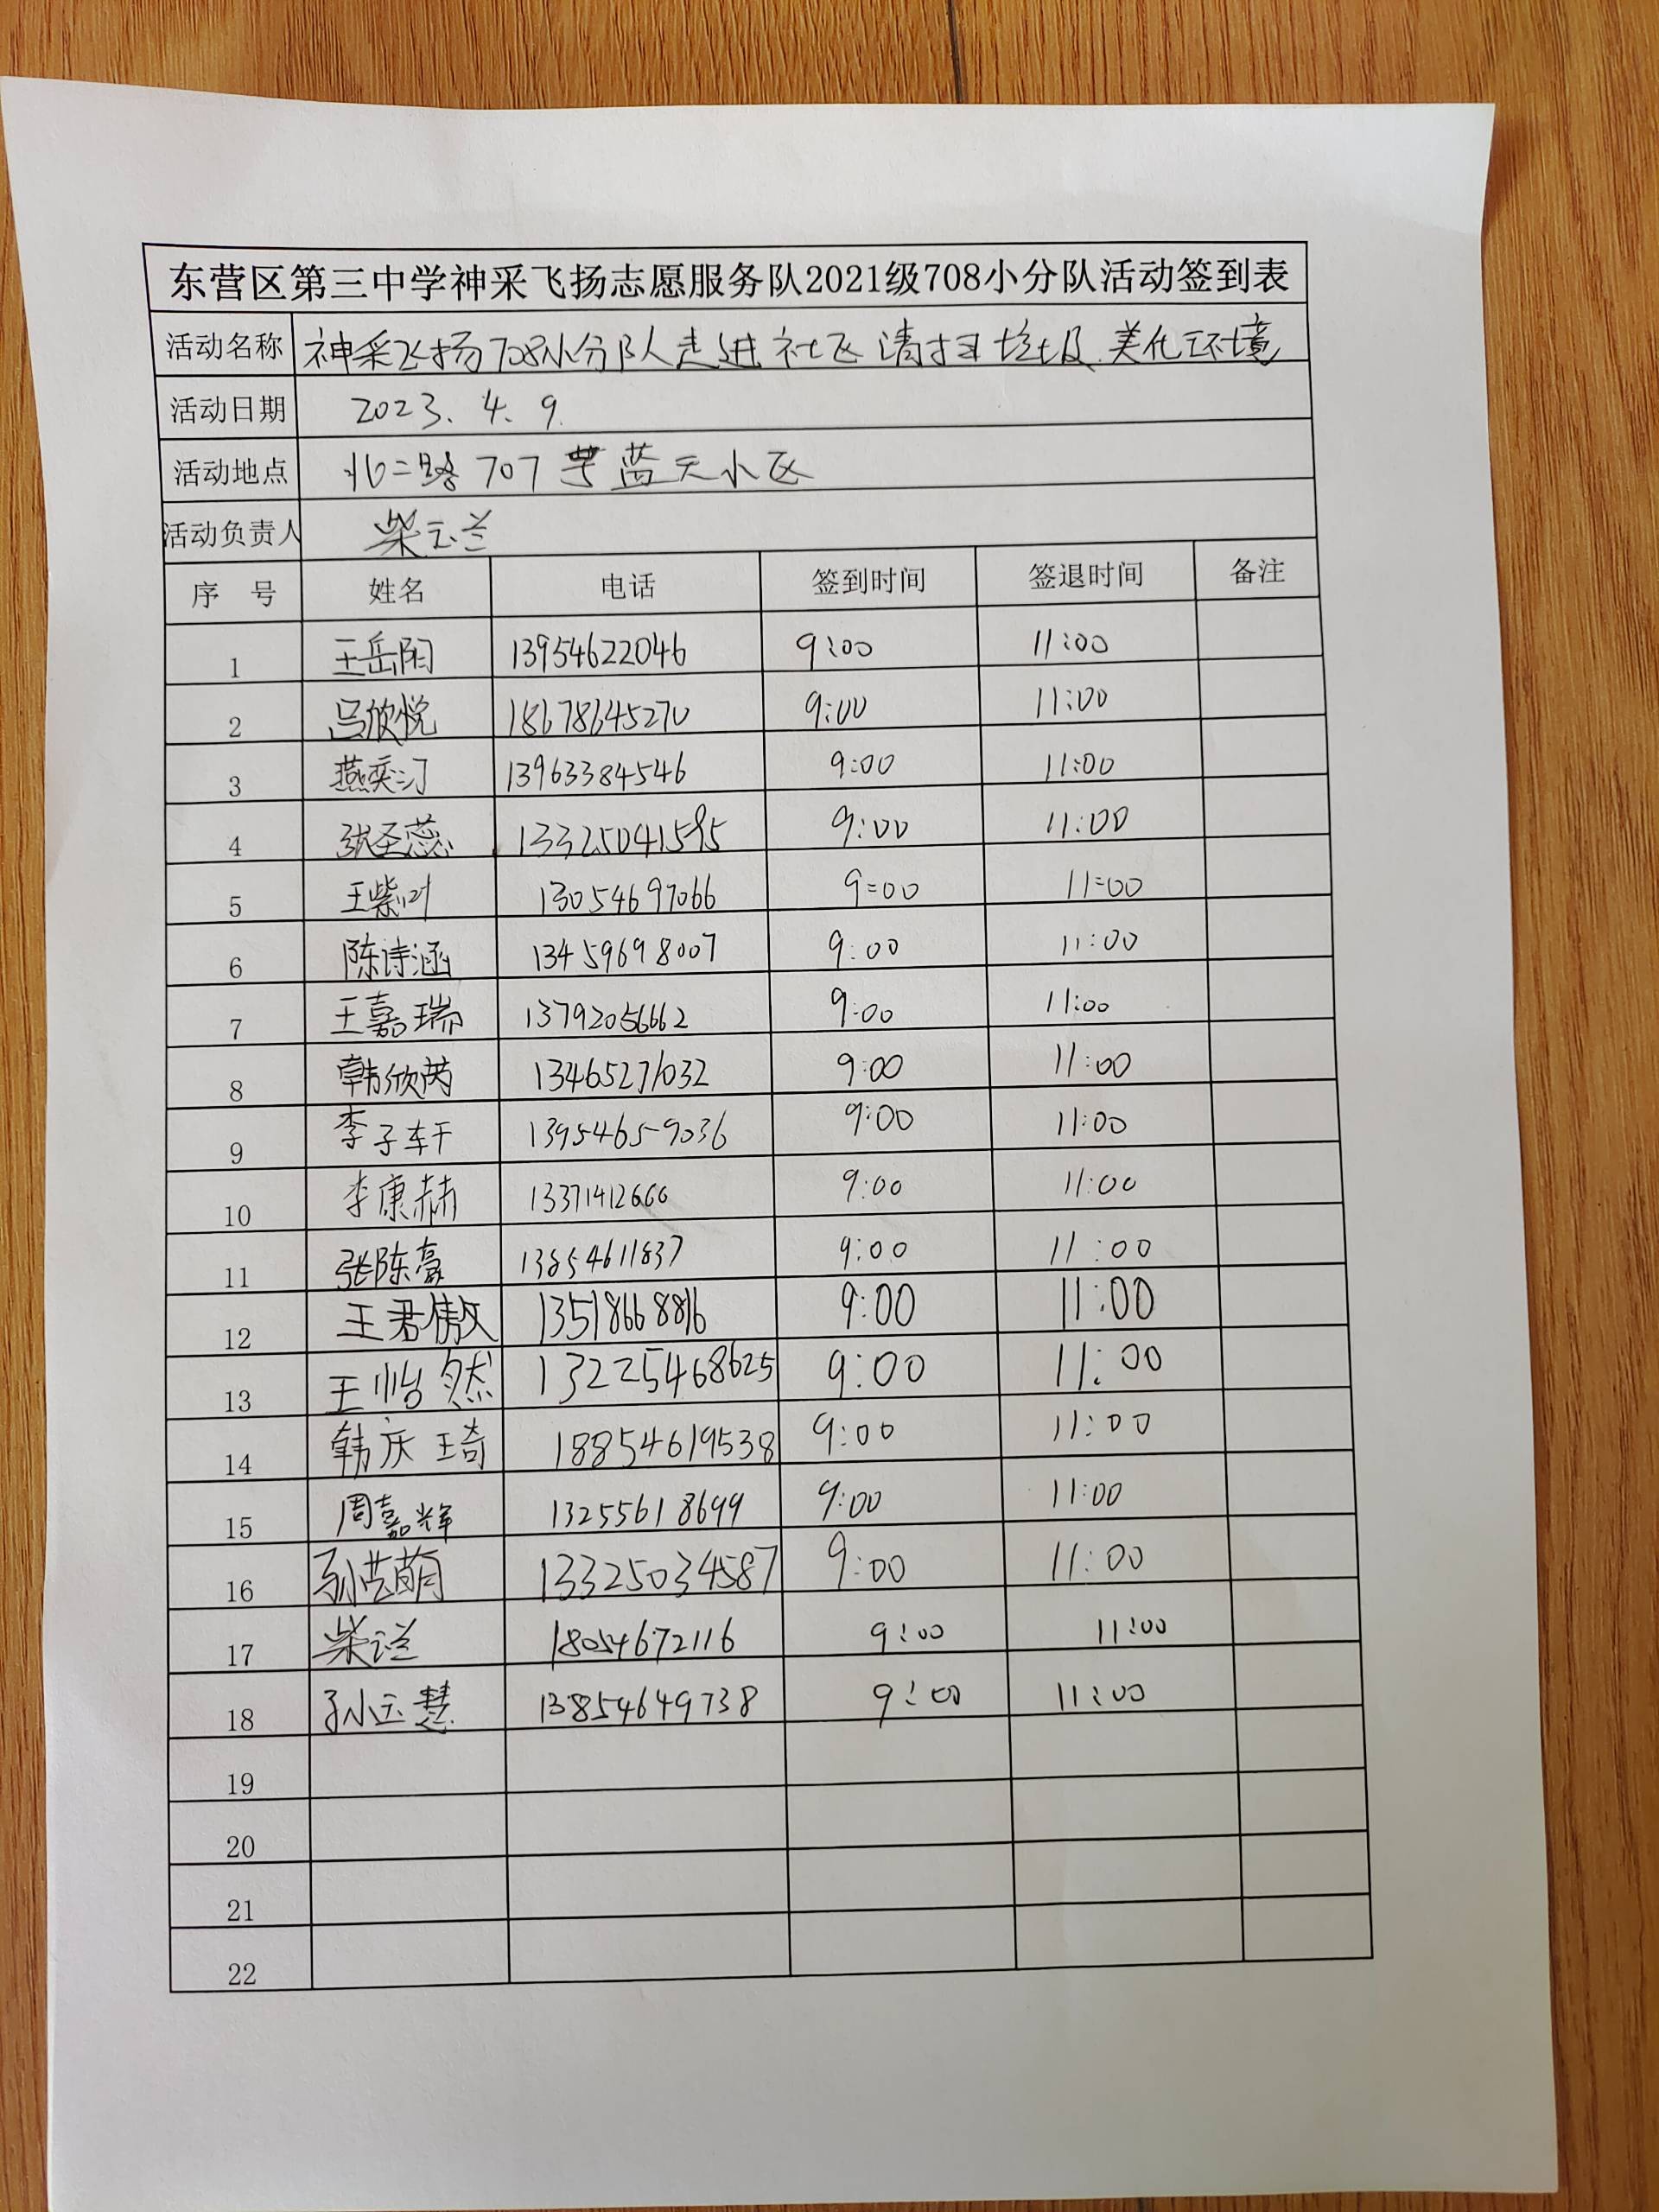 东营区第三中学神采飞扬志愿服务队2021级708小分队活动签到表
活动名称 神采飞扬708小分队走进社区清扫垃圾.美化环境
活动日期 2023.4.9.
活动地点 北二路707号蓝天小区
活动负责人 柴玉兰
序 号 姓名 电话 签到时间 签退时间 备注
1 王岳阳 13954622046 9:00 11:00
2 吕欣悦 18678645270 9:00 11:00
3 燕奕汀 13963384546 9:00 11:00
4 张圣蕊 13325041595 9:00 11:00
5 王紫 13054697066 9:00 11:00
6 陈诗涵 13459698007 9:00 11:00
7 王嘉瑞 13792056662 9:00 11:00
8 韩欣芮 13465271032 9:00 11:00
9 李子轩 13954659036 9:00 11:00
10 李康赫 13371412666 9:00 11:00
11 张陈豪 13854611837 9:00 11:00
12 王君傲 13518668816 9:00 11:00
13 王怡然 13225468625 9:00 11:00
14 韩庆琦 18854619538 9:00 11:00
15 周嘉辉 13255618699 9:00 11:00
16 孙艺萌 13325034587 9:00 11:00
17 柴玉兰 18054672116 9:00 11:00
18 孙玉慧 13854649738 9:00 11:00
19
20
21
22